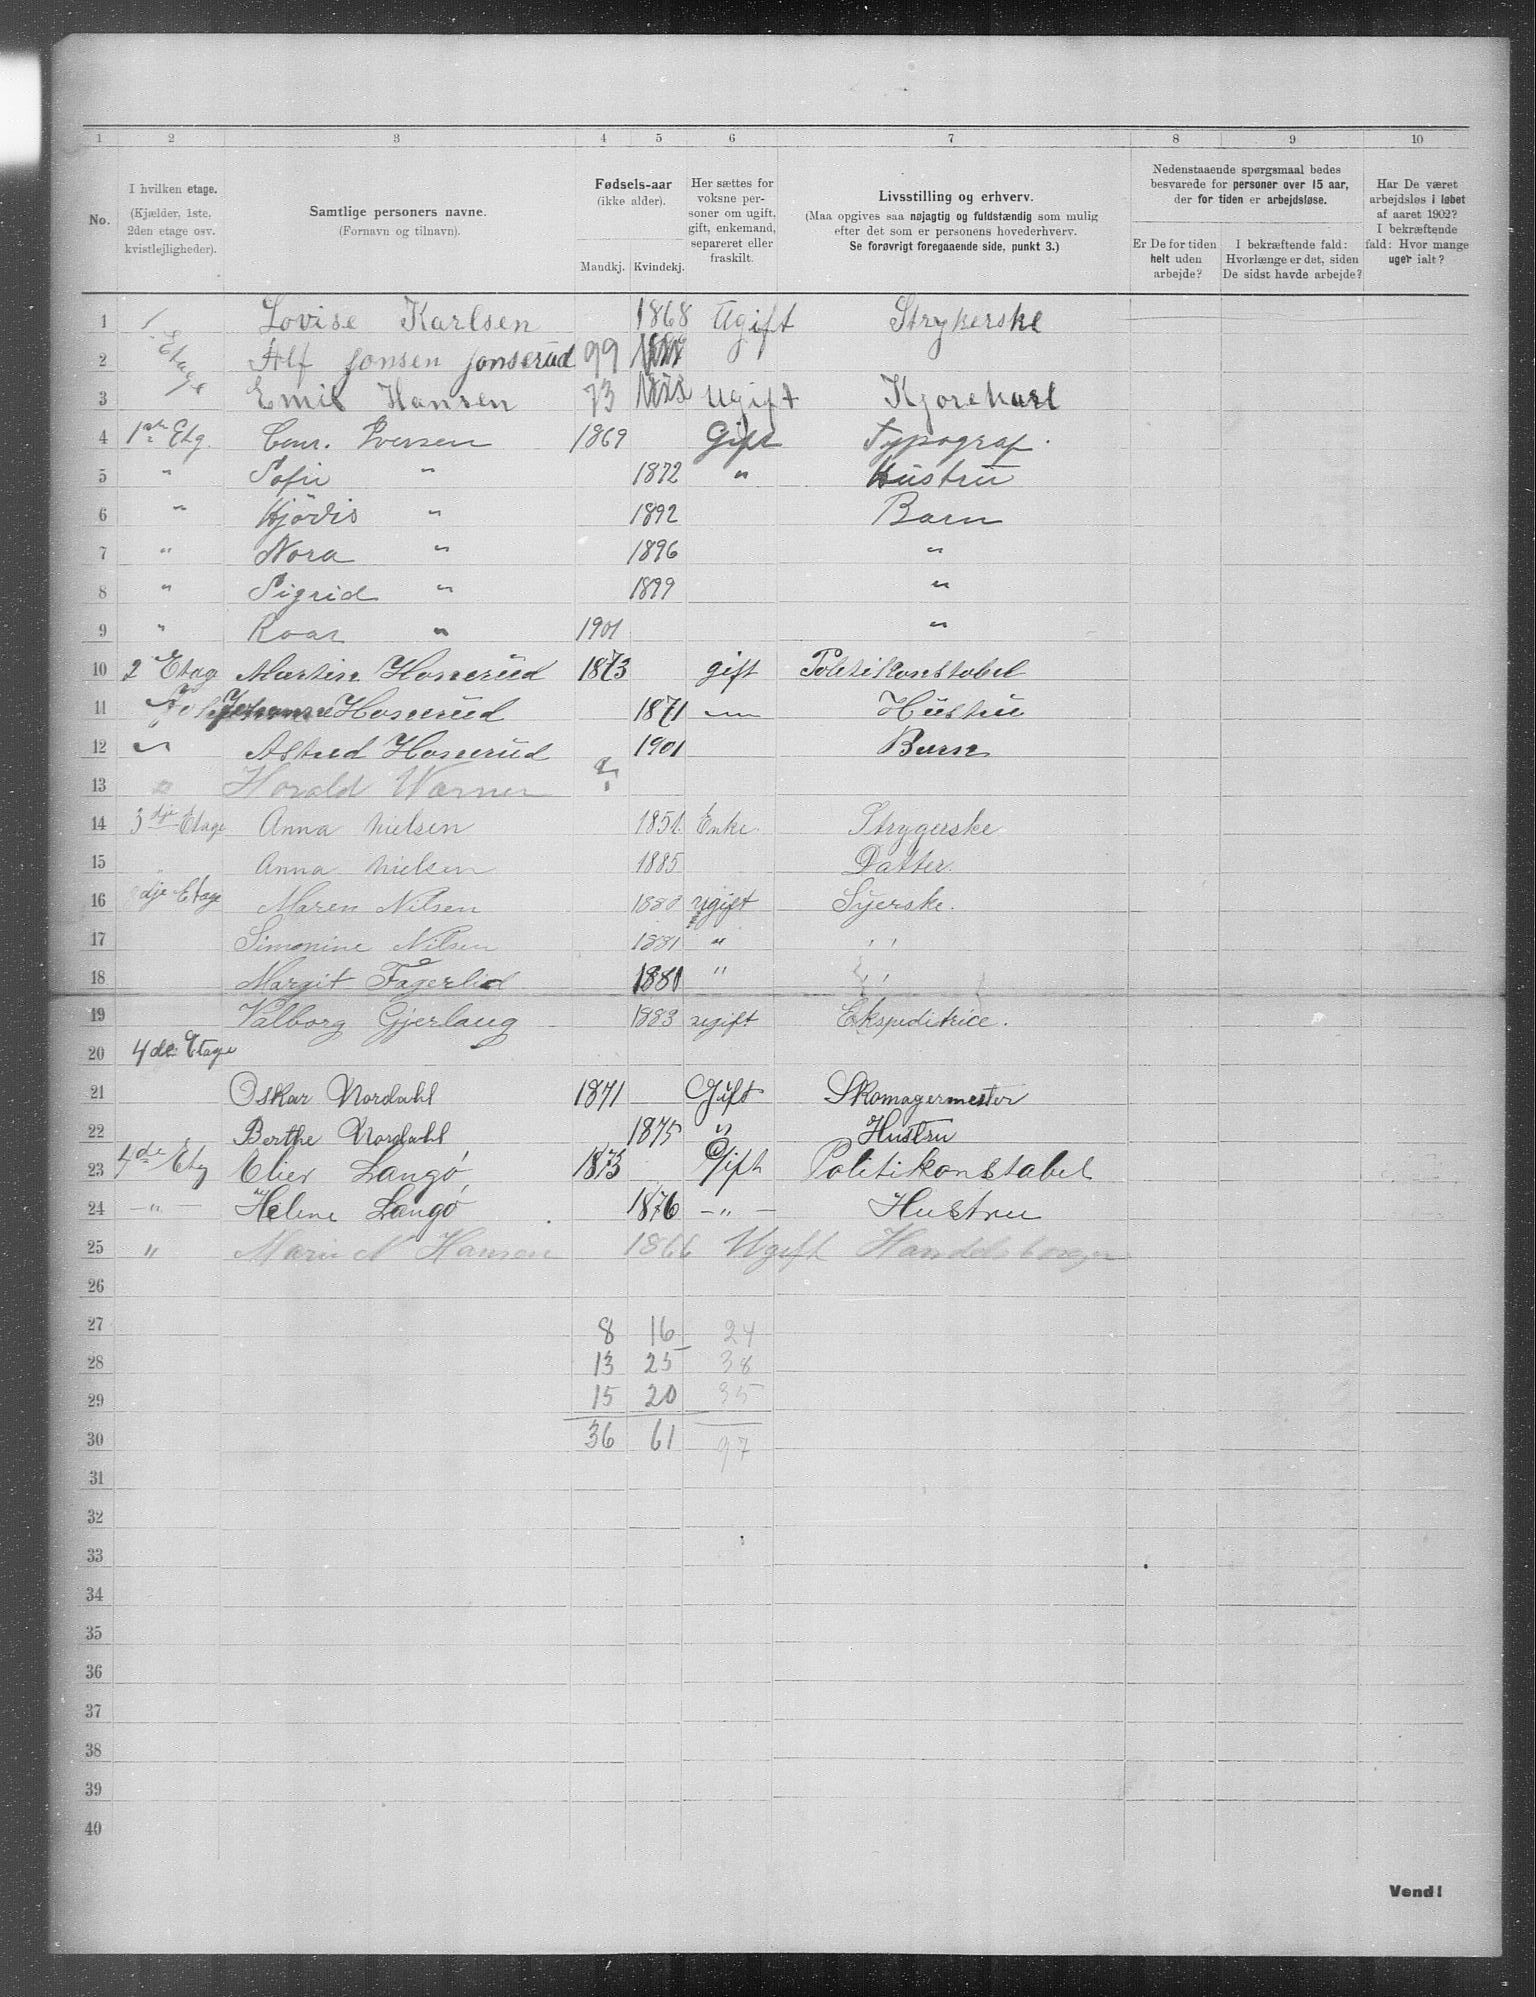 1 2 3 4 5 6 7 8 9 10
No.
I hvilken etage.
(Kjælder, 1ste,
2den etage osv.
kvistlejligheder).
Samtlige personers navne.
(Fornavn og tilnavn).
Fødsels-aar
(ikke alder).
Mandkj. Kvindekj.
Her sættes for
voksne per-
soner om ugift,
gift, enkemand,
separeret eller
fraskilt.
Livsstilling og erhverv.
(Maa opgives saa nøjagtig og fuldstændig som mulig
efter det som er personens hovederhverv.
Se forøvrigt foregaaende side, punkt 3.)
Nedenstaaende spørgsmaal bedes
besvarede for personer over 15 aar,
der for tiden er arbejdsløse.
Er De for tiden
helt uden
arbejde?
I bekræftende fald:
Hvorlænge er det, siden
De sidst havde arbejde?
Har De været
arbejdsløs i løbet
af aaret 1902?
I bekræftende
fald: Hvor mange
uger ialt?
1 1. Etage Lovise Karlsen 1868 Ugift Strykerske
2 Alf Jonsen Jonserud 99
3 Emil Hansen 73 Ugift Kjørekarl
4 1ste Etg. Conr. Iversen 1869 Gift Typograf.
5 " Sofie " 1872 " Hustru
6 " Hjördis " 1892 Barn
7 " Nora " 1896 "
8 " Sigrid " 1899 "
9 " Roar " 1901 "
10 2 Etage Martin Honerud 1873 gift Politikonstabel
11 Honerud 1871 — Hustru
12 " Astrid Honerud 1901 Barn
13 " Harald Warner
14 3dje Etage Anna Nielsen 1851 Enke. Strygerske
15 Anna Nielsen 1885 Datter.
16 3dje Etage Maren Nilsen 1880 ugift Syerske.
17 Simonine Nilsen 1881 " "
18 Margit Fagerlid 1880 " "
19 Valborg Gjerlaug 1883 ugift Ekspeditrice.
20 4de Etage
21 Oskar Nordahl 1871 Gift Skomagermester
22 Berthe Nordahl 1875 " Hustru
23 4de Etg Elier Langö, 1873 Gift Politikonstabel
24 — " — Helene Langö 1876 — " — Hustru
25 " Marie N Hansen 1866 Ugift Handelsborger
26
27 8 16 24
28 13 25 38
29 15 20 35
30 36 61 97
31
32
33
34
35
36
37
38
39
40
Vend!